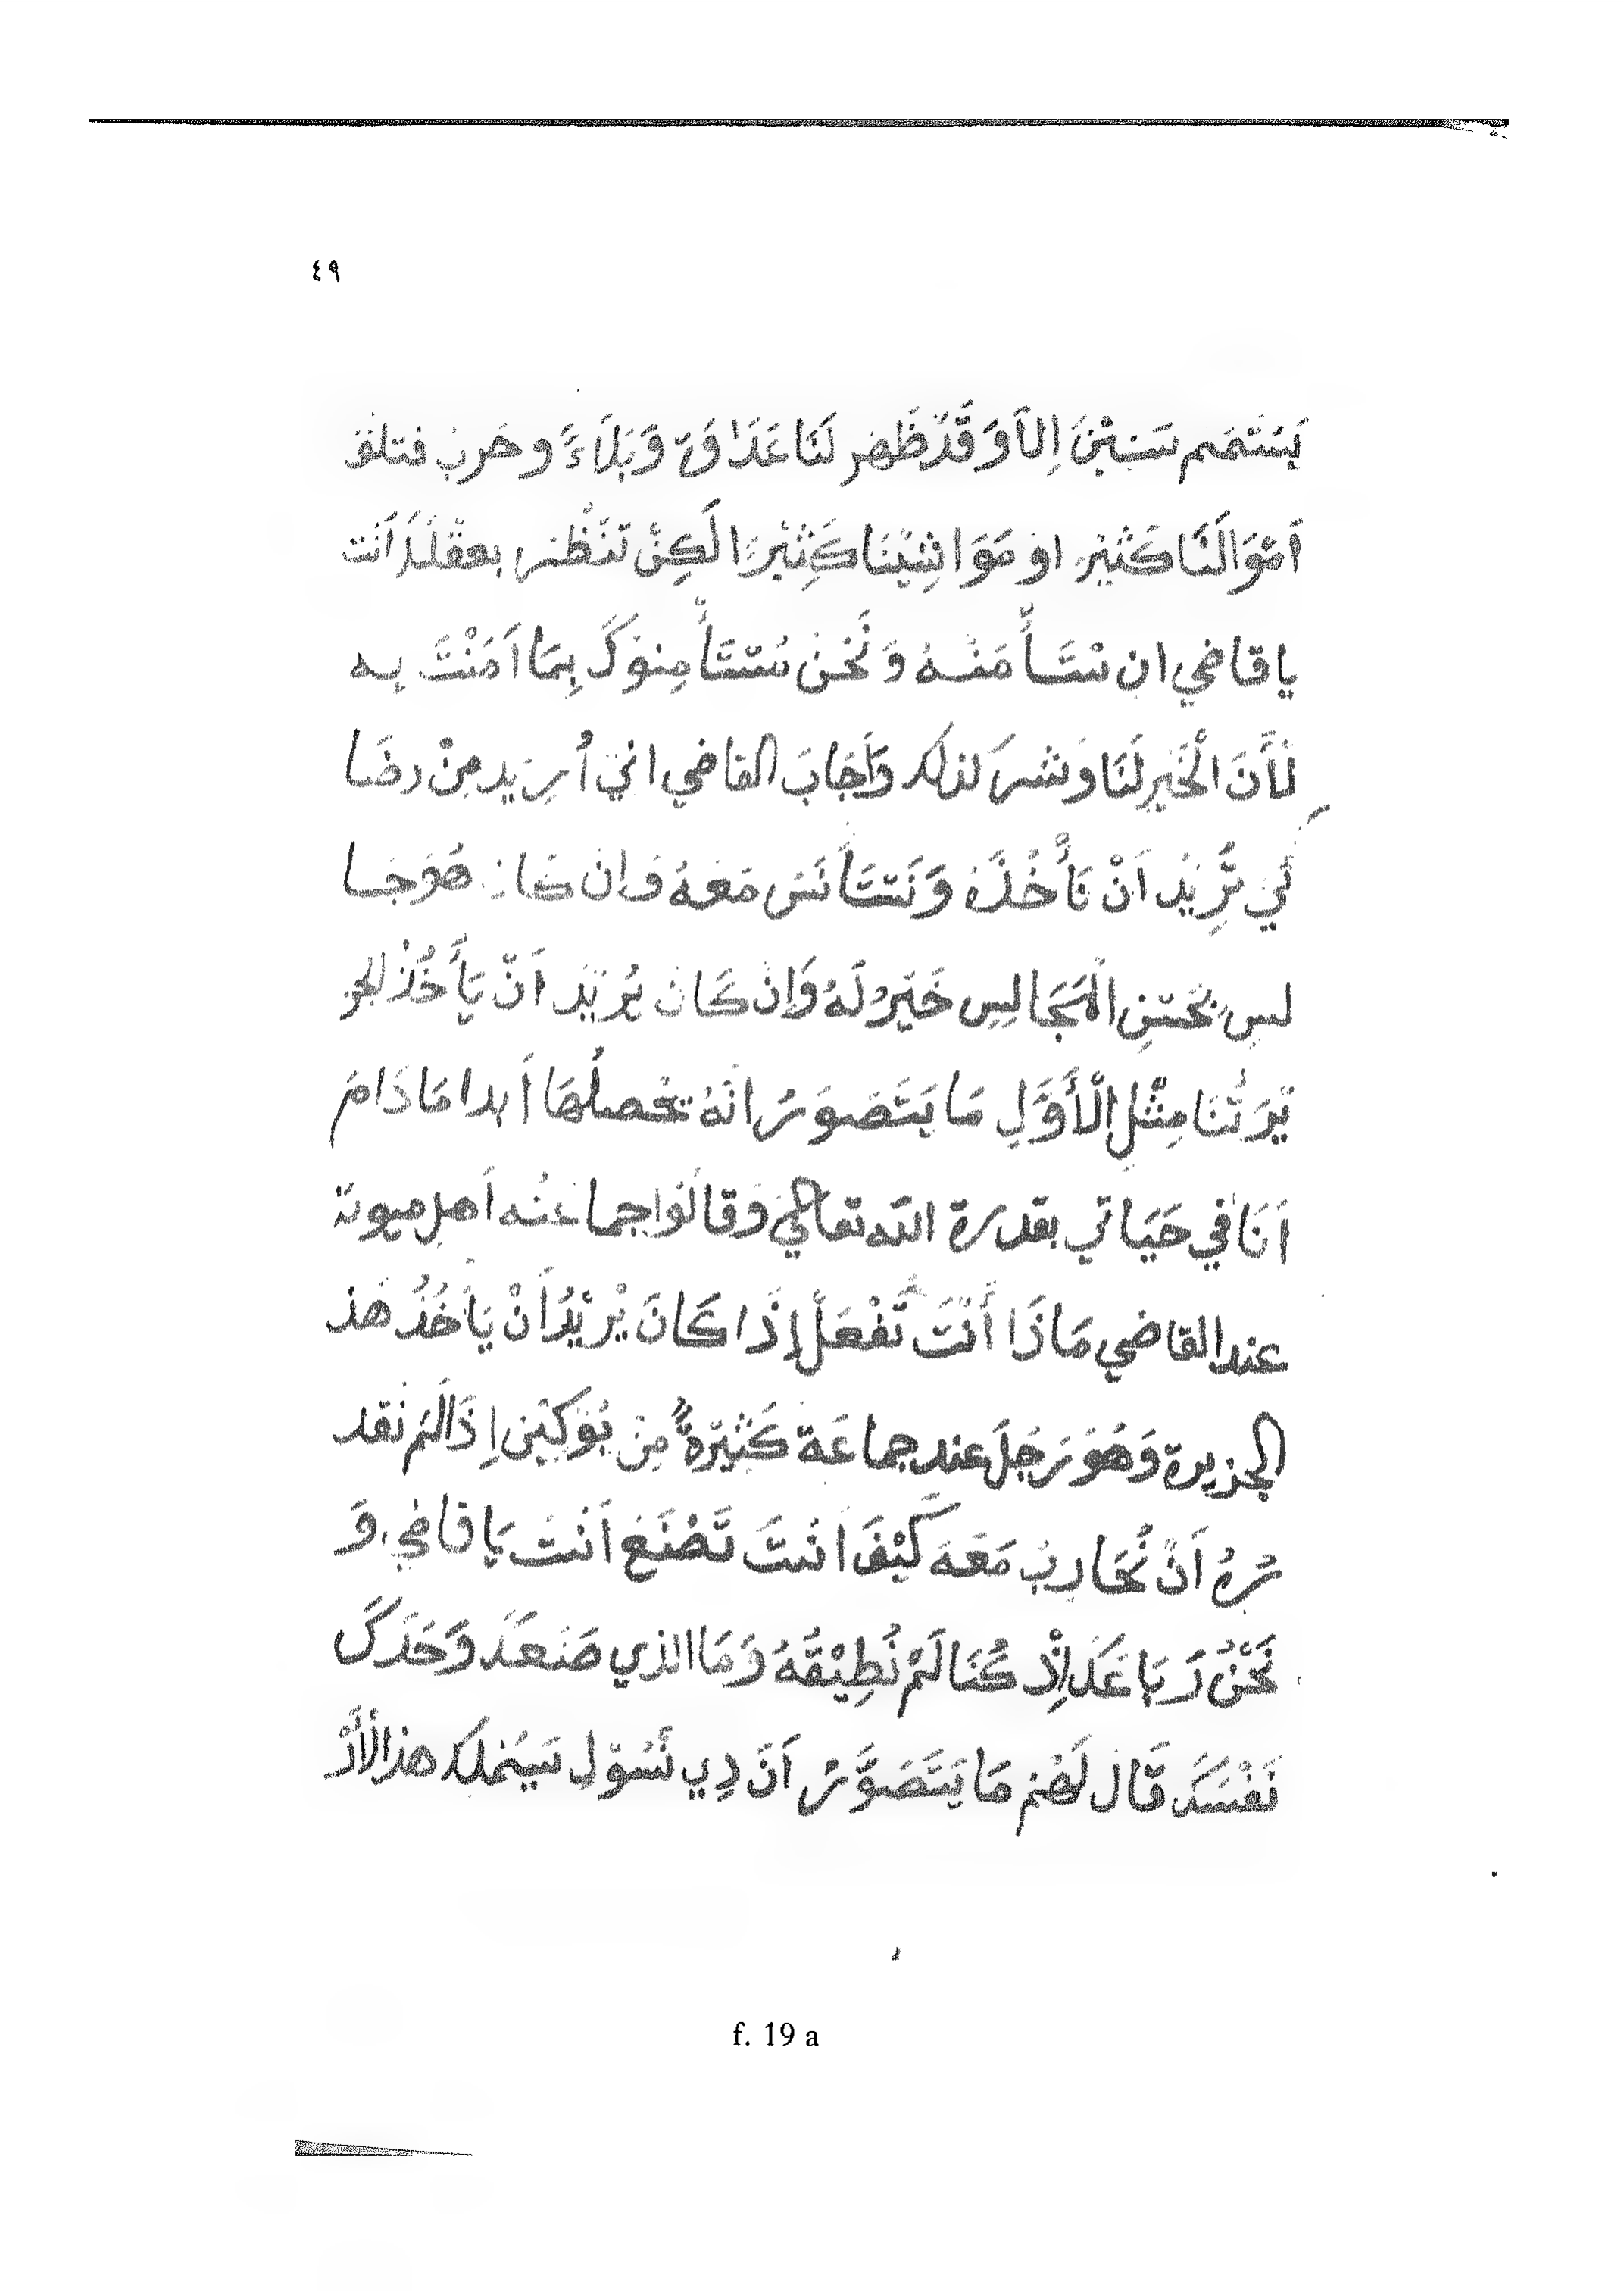 ٤٩
يَسْتَمَّمْ سَنِيْنَ اِلَّا وَقَدْ ظَهَر لَنَا عَدَاوَة وَبَلَآءً وحَربْ فتلفوْ
اَمْوَالَنَا كَثيْر اوْ مَوَاشِيْنَا كَثِيْرًا لَكِنْ تَنْظُر بعقْلِكَ اَنْت
يا قاضي ان سْتَأْمَنْهُ وَنَحْنْ سْتَأْمِنوكَ بِمَا اَمَنْتَ بِه
لأَنَ الْخَيرْ لَنَا وَشَر كذلك وَأَجَابَ القاضي اني اُرِيَد مِنْ رضَا
لي تُّرِيْد اَنْ تَأْخُذَهُ وَنَسْتَأْنَسْ مَعَهُ فَإِن كَان هُوَجَا
لس بِحْسَنِ الْمَجَالِس خَيْرٌ لَهُ وَاِنْ كَانْ يُرِيْد اَنْ يَأْخُذْ الجَزِ
يْرَتُنَا مِثْلِ الْأَوَّلِ مَا يَتَصَوَرُ انَهُ تحْصلُهَا اَبدا مَا دَامَ
اَنَا في حَيَاتي بقدرة الله تعالى وَقالُوا جماعَنُه اَهل ميوتة
عند القاضي مَاذَا أَنْتَ تَفْعَلْ إِذَا كَانَ يُرِيْدُ اَنْ يَأْخُذُ هَذ
الجزيرة وَهُوَ رَجُلَ عند جماعَة كَثيْرَةٌ مِنْ بُوْكِيْنِ إِذَا لَمْ نقد
رُهُ اَنْ نُحَاربْ مَعَهَ كَيْفَ اَنْتَ تَصْنَعْ اَنْتْ يَا قاضي. وَ
نَحْنُ رَبَاعَكَ إِذْ كُنَا لَمْ نُطِيْقُهُ وَمَا الذي صَنَعَكَ وَحَدَكَ
نَفْسَكَ قَال لَهُمْ مَا يَتَصَوَّرُ اَنْ دِي نْسُوْلِ سَيَمْلِك هذ الأَرْ
f. 19 a